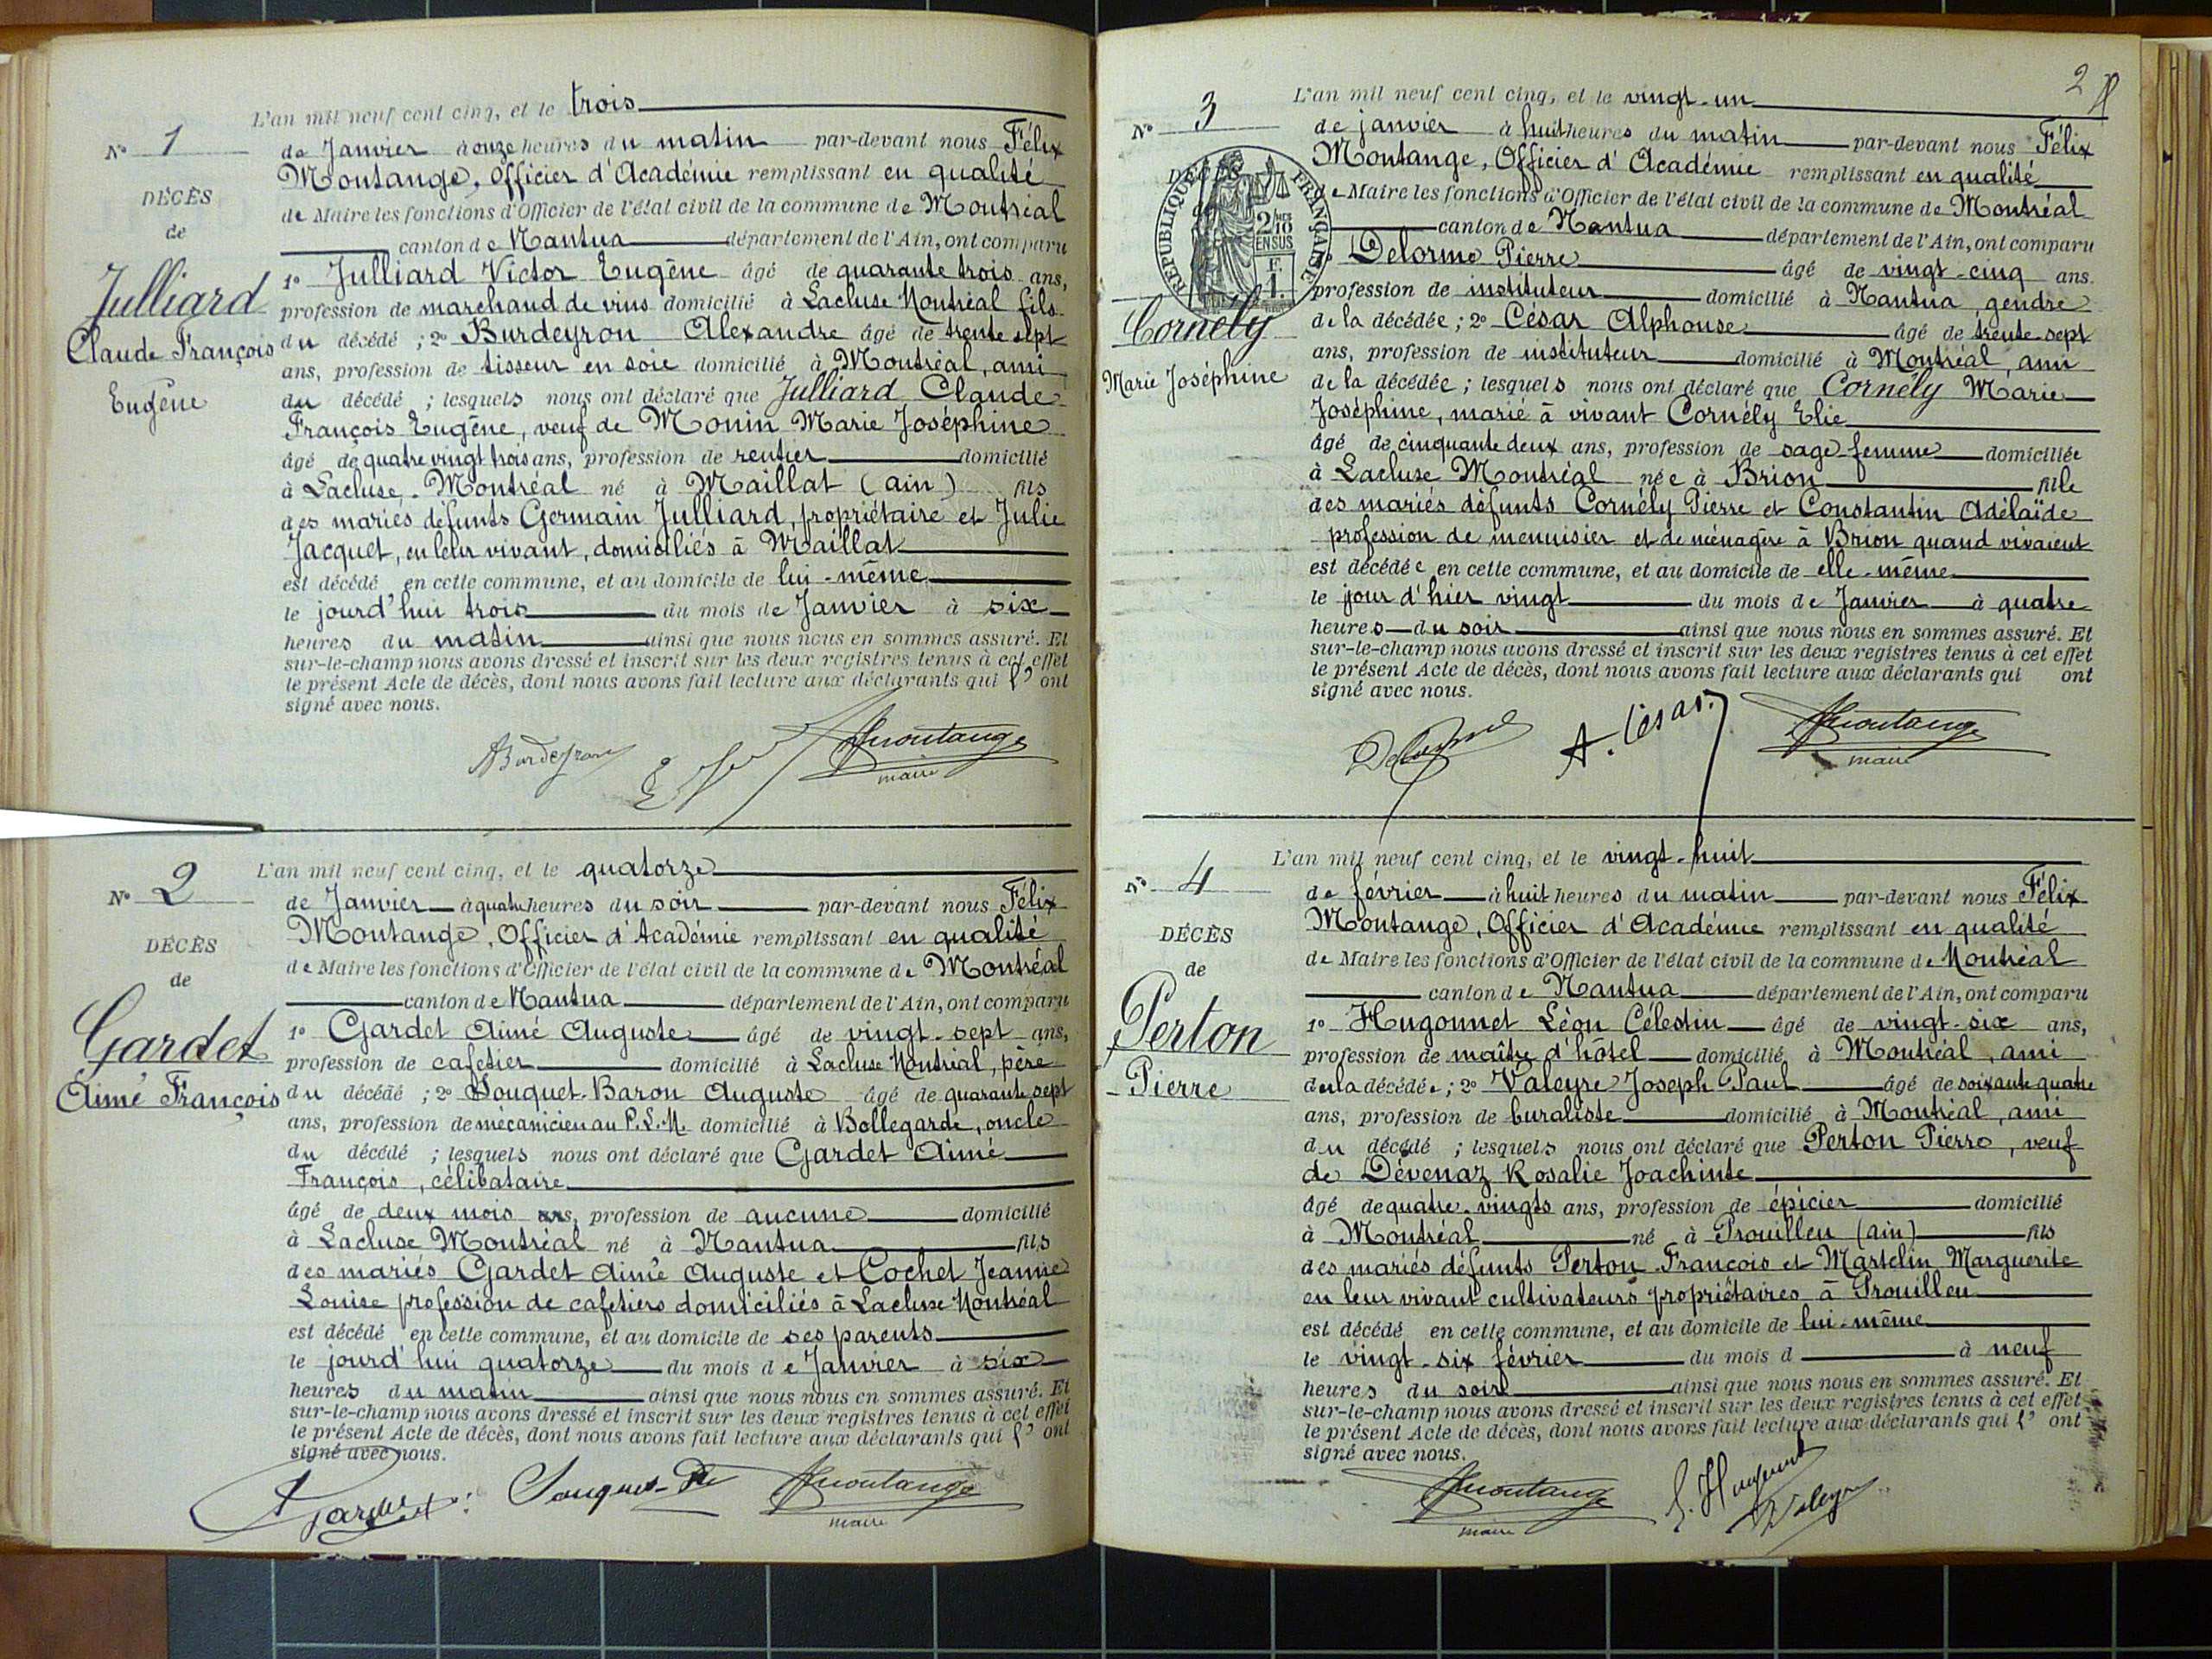 L'an mil neuf cent cinq, et le trois
N° 1
de Janvier à onze heures du matin par-devant nous Félix
Montange, Officier d'Académie remplissant en qualité
DÉCÈS
de Maire les fonctions d'Officier de l'état civil de la commune de Montréal
de
canton de Nantua département de l'Ain, ont comparu
Julliard
1° Julliard Victor Eugène âgé de quarante trois ans,
profession de marchand de vins domicilié à Lacluse Montréal fils
Claude François
du décédé ; 2° Burdeyron Alexandre âgé de trente sept
ans, profession de tisseur en soie domicilié à Montréal, ami
Eugène
du décédé ; lesquels nous ont déclaré que Julliard Claude
François Eugène, veuf de Monin Marie Joséphine
âgé de quatre vingt trois ans, profession de rentier domicilié
à Lacluse-Montréal né à Maillat (ain) fils
des mariés défunts Germain Julliard, propriétaire et Julie
Jacquet, en leur vivant, domiciliés à Maillat
est décédé en cette commune, et au domicile de lui-même
le jourd'hui trois du mois de Janvier à six
heures du matin ainsi que nous nous en sommes assuré. Et
sur-le-champ nous avons dressé et inscrit sur les deux registres tenus à cet effet
le présent Acte de décès, dont nous avons fait lecture aux déclarants qui l' ont
signé avec nous.
ABurdeyron
Montange
maire
L'an mil neuf cent cinq, et le quatorze
N° 2
de Janvier à quatre heures du soir par-devant nous Félix
Montange, Officier d'Académie remplissant en qualité
DÉCÈS
de Maire les fonctions d'Officier de l'état civil de la commune de Montréal
de
canton de Nantua département de l'Ain, ont comparu
Gardet
1° Gardet Aimé Auguste âgé de vingt-sept ans,
profession de cafetier domicilié à Lacluse Montréal, père
Aimé François
du décédé ; 2° Souquet-Baron Auguste âgé de quarante sept
ans, profession de mécanicien au P.L.M. domicilié à Bellegarde, oncle
du décédé ; lesquels nous ont déclaré que Gardet Aimé
François, célibataire
âgé de deux mois ans, profession de aucune domicilié
à Lacluse Montréal né à Nantua fils
des mariés Gardet Aimé Auguste et Cochet Jeanne
Louise profession de cafetiers domiciliés à Lacluse Montréal
est décédé en cette commune, et au domicile de ses parents
le jourd'hui quatorze du mois de Janvier à six
heures du matin ainsi que nous nous en sommes assuré. Et
sur-le-champ nous avons dressé et inscrit sur les deux registres tenus à cet effet
le présent Acte de décès, dont nous avons fait lecture aux déclarants qui l' ont
signé avec nous.
Gardet
Souquet-
Montange
maire
2
L'an mil neuf cent cinq, et le vingt-un
N° 3
de janvier à huit heures du matin par-devant nous Félix
Montange, Officier d'Académie remplissant en qualité
DÉCÈS
de
RÉPUBLIQUE FRANÇAISE
2/10
EN SUS
F.
1.
de Maire les fonctions d'Officier de l'état civil de la commune de Montréal
canton de Nantua département de l'Ain, ont comparu
Delorme Pierre âgé de vingt-cinq ans.
profession de instituteur domicilié à Nantua, gendre
Cornély
de la décédée ; 2° César Alphonse âgé de trente-sept
ans, profession de instituteur domicilié à Montréal, ami
Marie Joséphine
de la décédée ; lesquels nous ont déclaré que Cornély Marie
Joséphine, marié à vivant Cornély Elie
âgé de cinquante deux ans, profession de sage-femme domiciliée
à Lacluse Montréal née à Brion fille
des mariés défunts Cornély Pierre et Constantin Adélaïde
profession de menuisier et de ménagère à Brion quand vivaient
est décédée en cette commune, et au domicile de elle-même
le jour d'hier vingt du mois de Janvier à quatre
heures du soir ainsi que nous nous en sommes assuré. Et
sur-le-champ nous avons dressé et inscrit sur les deux registres tenus à cet effet
le présent Acte de décès, dont nous avons fait lecture aux déclarants qui ont
signé avec nous.
Delorme
A. César
Montange
maire
L'an mil neuf cent cinq, et le vingt-huit
N° 4
de février à huit heures du matin par-devant nous Félix
Montange, Officier d'Académie remplissant en qualité
DÉCÈS
de Maire les fonctions d'Officier de l'état civil de la commune de Montréal
de
canton de Nantua département de l'Ain, ont comparu
Perton
1° Hugonnet Léon Célestin âgé de vingt-six ans,
profession de maître d'hôtel domicilié à Montréal, ami
Pierre
de la décédée ; 2° Valeyre Joseph Paul âgé de soixante quatre
ans, profession de buraliste domicilié à Montréal, ami
du décédé ; lesquels nous ont déclaré que Perton Pierre, veuf
de Dévenaz Rosalie Joachinte
âgé de quatre-vingts ans, profession de épicier domicilié
à Montréal né à Prouilleu (ain) fils
des mariés défunts Perton François et Martelin Marguerite
en leur vivant cultivateurs propriétaires à Prouilleu
est décédé en cette commune, et au domicile de lui-même
le vingt-six février du mois d à neuf
heures du soir ainsi que nous nous en sommes assuré. Et
sur-le-champ nous avons dressé et inscrit sur les deux registres tenus à cet effet
le présent Acte de décès, dont nous avons fait lecture aux déclarants qui l' ont
signé avec nous.
Montange
maire
L. Hugonnet
Valeyre